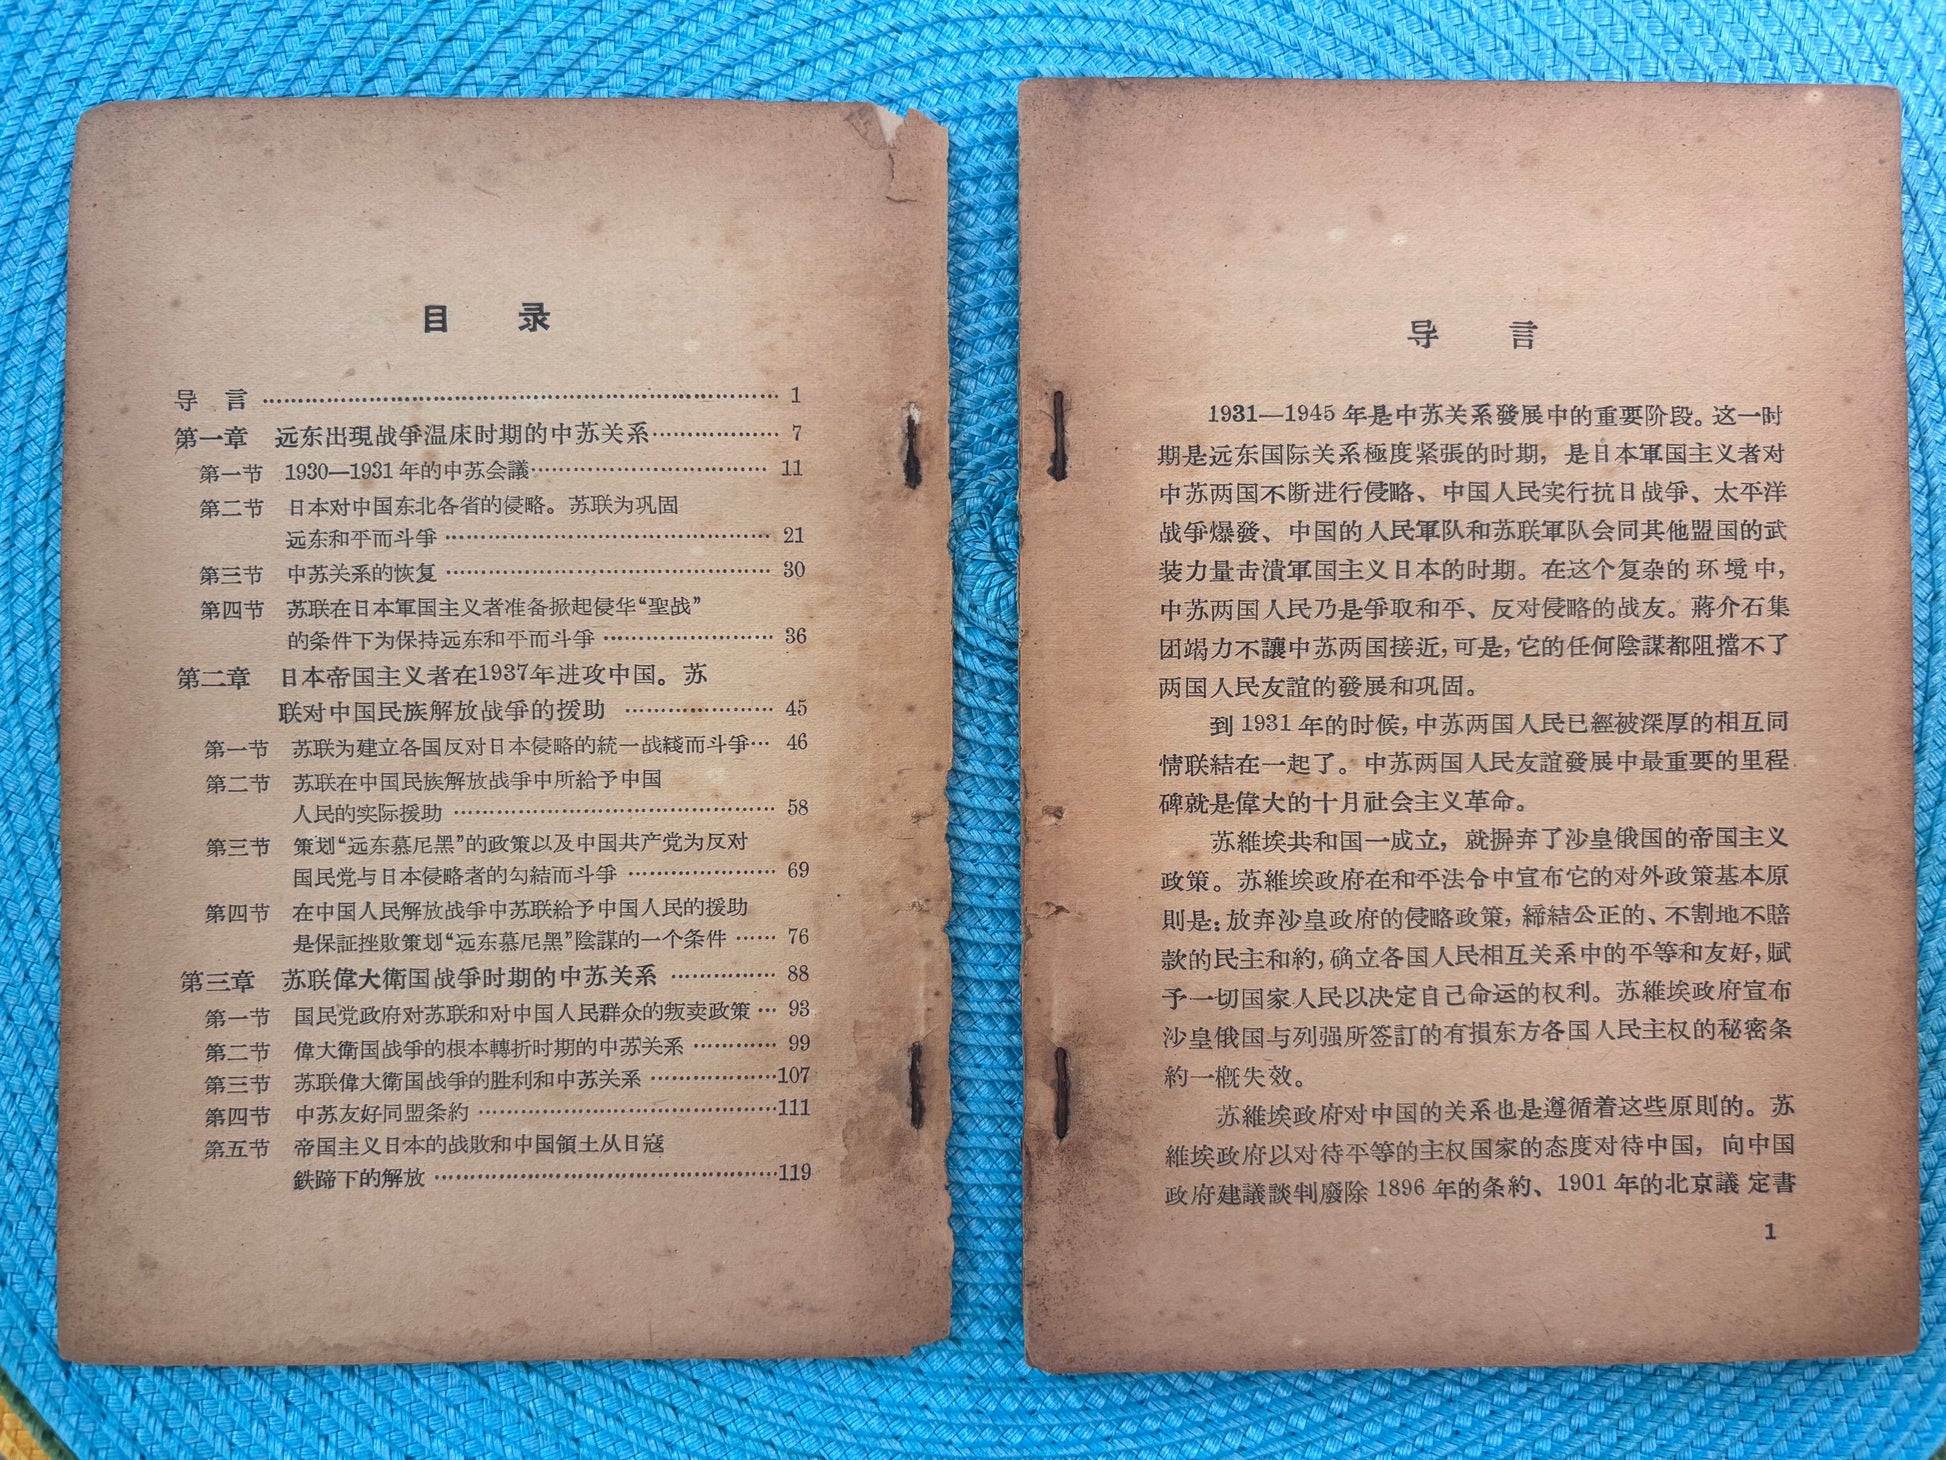 目 录
导 言 ………………………………………………………… 1
第一章 远东出現战爭温床时期的中苏关系…………… 7
第一节 1930—1931 年的中苏会議………………………… 11
第二节 日本对中国东北各省的侵略。苏联为巩固
远东和平而斗爭 …………………………………… 21
第三节 中苏关系的恢复 …………………………………… 30
第四节 苏联在日本軍国主义者准备掀起侵华“聖战”
的条件下为保持远东和平而斗爭 ………………… 36
第二章 日本帝国主义者在1937年进攻中国。苏
联对中国民族解放战爭的援助 ……………… 45
第一节 苏联为建立各国反对日本侵略的統一战綫而斗爭… 46
第二节 苏联在中国民族解放战爭中所給予中国
人民的实际援助 …………………………………… 58
第三节 策划“远东慕尼黑”的政策以及中国共产党为反对
国民党与日本侵略者的勾結而斗爭 ……………… 69
第四节 在中国人民解放战爭中苏联給予中国人民的援助
是保証挫敗策划“远东慕尼黑”陰謀的一个条件 …… 76
第三章 苏联偉大衛国战爭时期的中苏关系 ………… 88
第一节 国民党政府对苏联和对中国人民群众的叛卖政策 … 93
第二节 偉大衛国战爭的根本轉折时期的中苏关系 ………… 99
第三节 苏联偉大衛国战爭的胜利和中苏关系 ……………107
第四节 中苏友好同盟条約 …………………………………111
第五节 帝国主义日本的战敗和中国領土从日寇
鉄蹄下的解放 ………………………………………119
导 言
1931—1945 年是中苏关系發展中的重要阶段。这一时
期是远东国际关系極度紧張的时期，是日本軍国主义者对
中苏两国不断进行侵略、中国人民实行抗日战爭、太平洋
战爭爆發、中国的人民軍队和苏联軍队会同其他盟国的武
装力量击潰軍国主义日本的时期。在这个复杂的环境中，
中苏两国人民乃是爭取和平、反对侵略的战友。蔣介石集
团竭力不讓中苏两国接近，可是，它的任何陰謀都阻擋不了
两国人民友誼的發展和巩固。
到 1931 年的时候，中苏两国人民已經被深厚的相互同
情联結在一起了。中苏两国人民友誼發展中最重要的里程
碑就是偉大的十月社会主义革命。
苏維埃共和国一成立，就摒弃了沙皇俄国的帝国主义
政策。苏維埃政府在和平法令中宣布它的对外政策基本原
則是：放弃沙皇政府的侵略政策，締結公正的、不割地不賠
款的民主和約，确立各国人民相互关系中的平等和友好，賦
予一切国家人民以决定自己命运的权利。苏維埃政府宣布
沙皇俄国与列强所签訂的有損东方各国人民主权的秘密条
約一概失效。
苏維埃政府对中国的关系也是遵循着这些原則的。苏
維埃政府以对待平等的主权国家的态度对待中国，向中国
政府建議談判廢除 1896 年的条約、1901 年的北京議定書
1